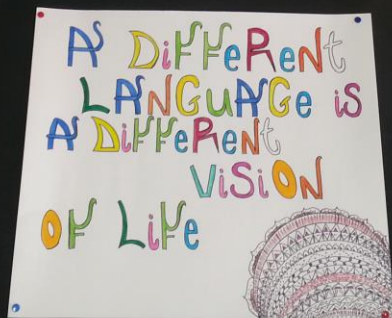 A DiFFeRENt
LANGUAGe is
A DiFFeRENt
ViSiON
OF LiFe